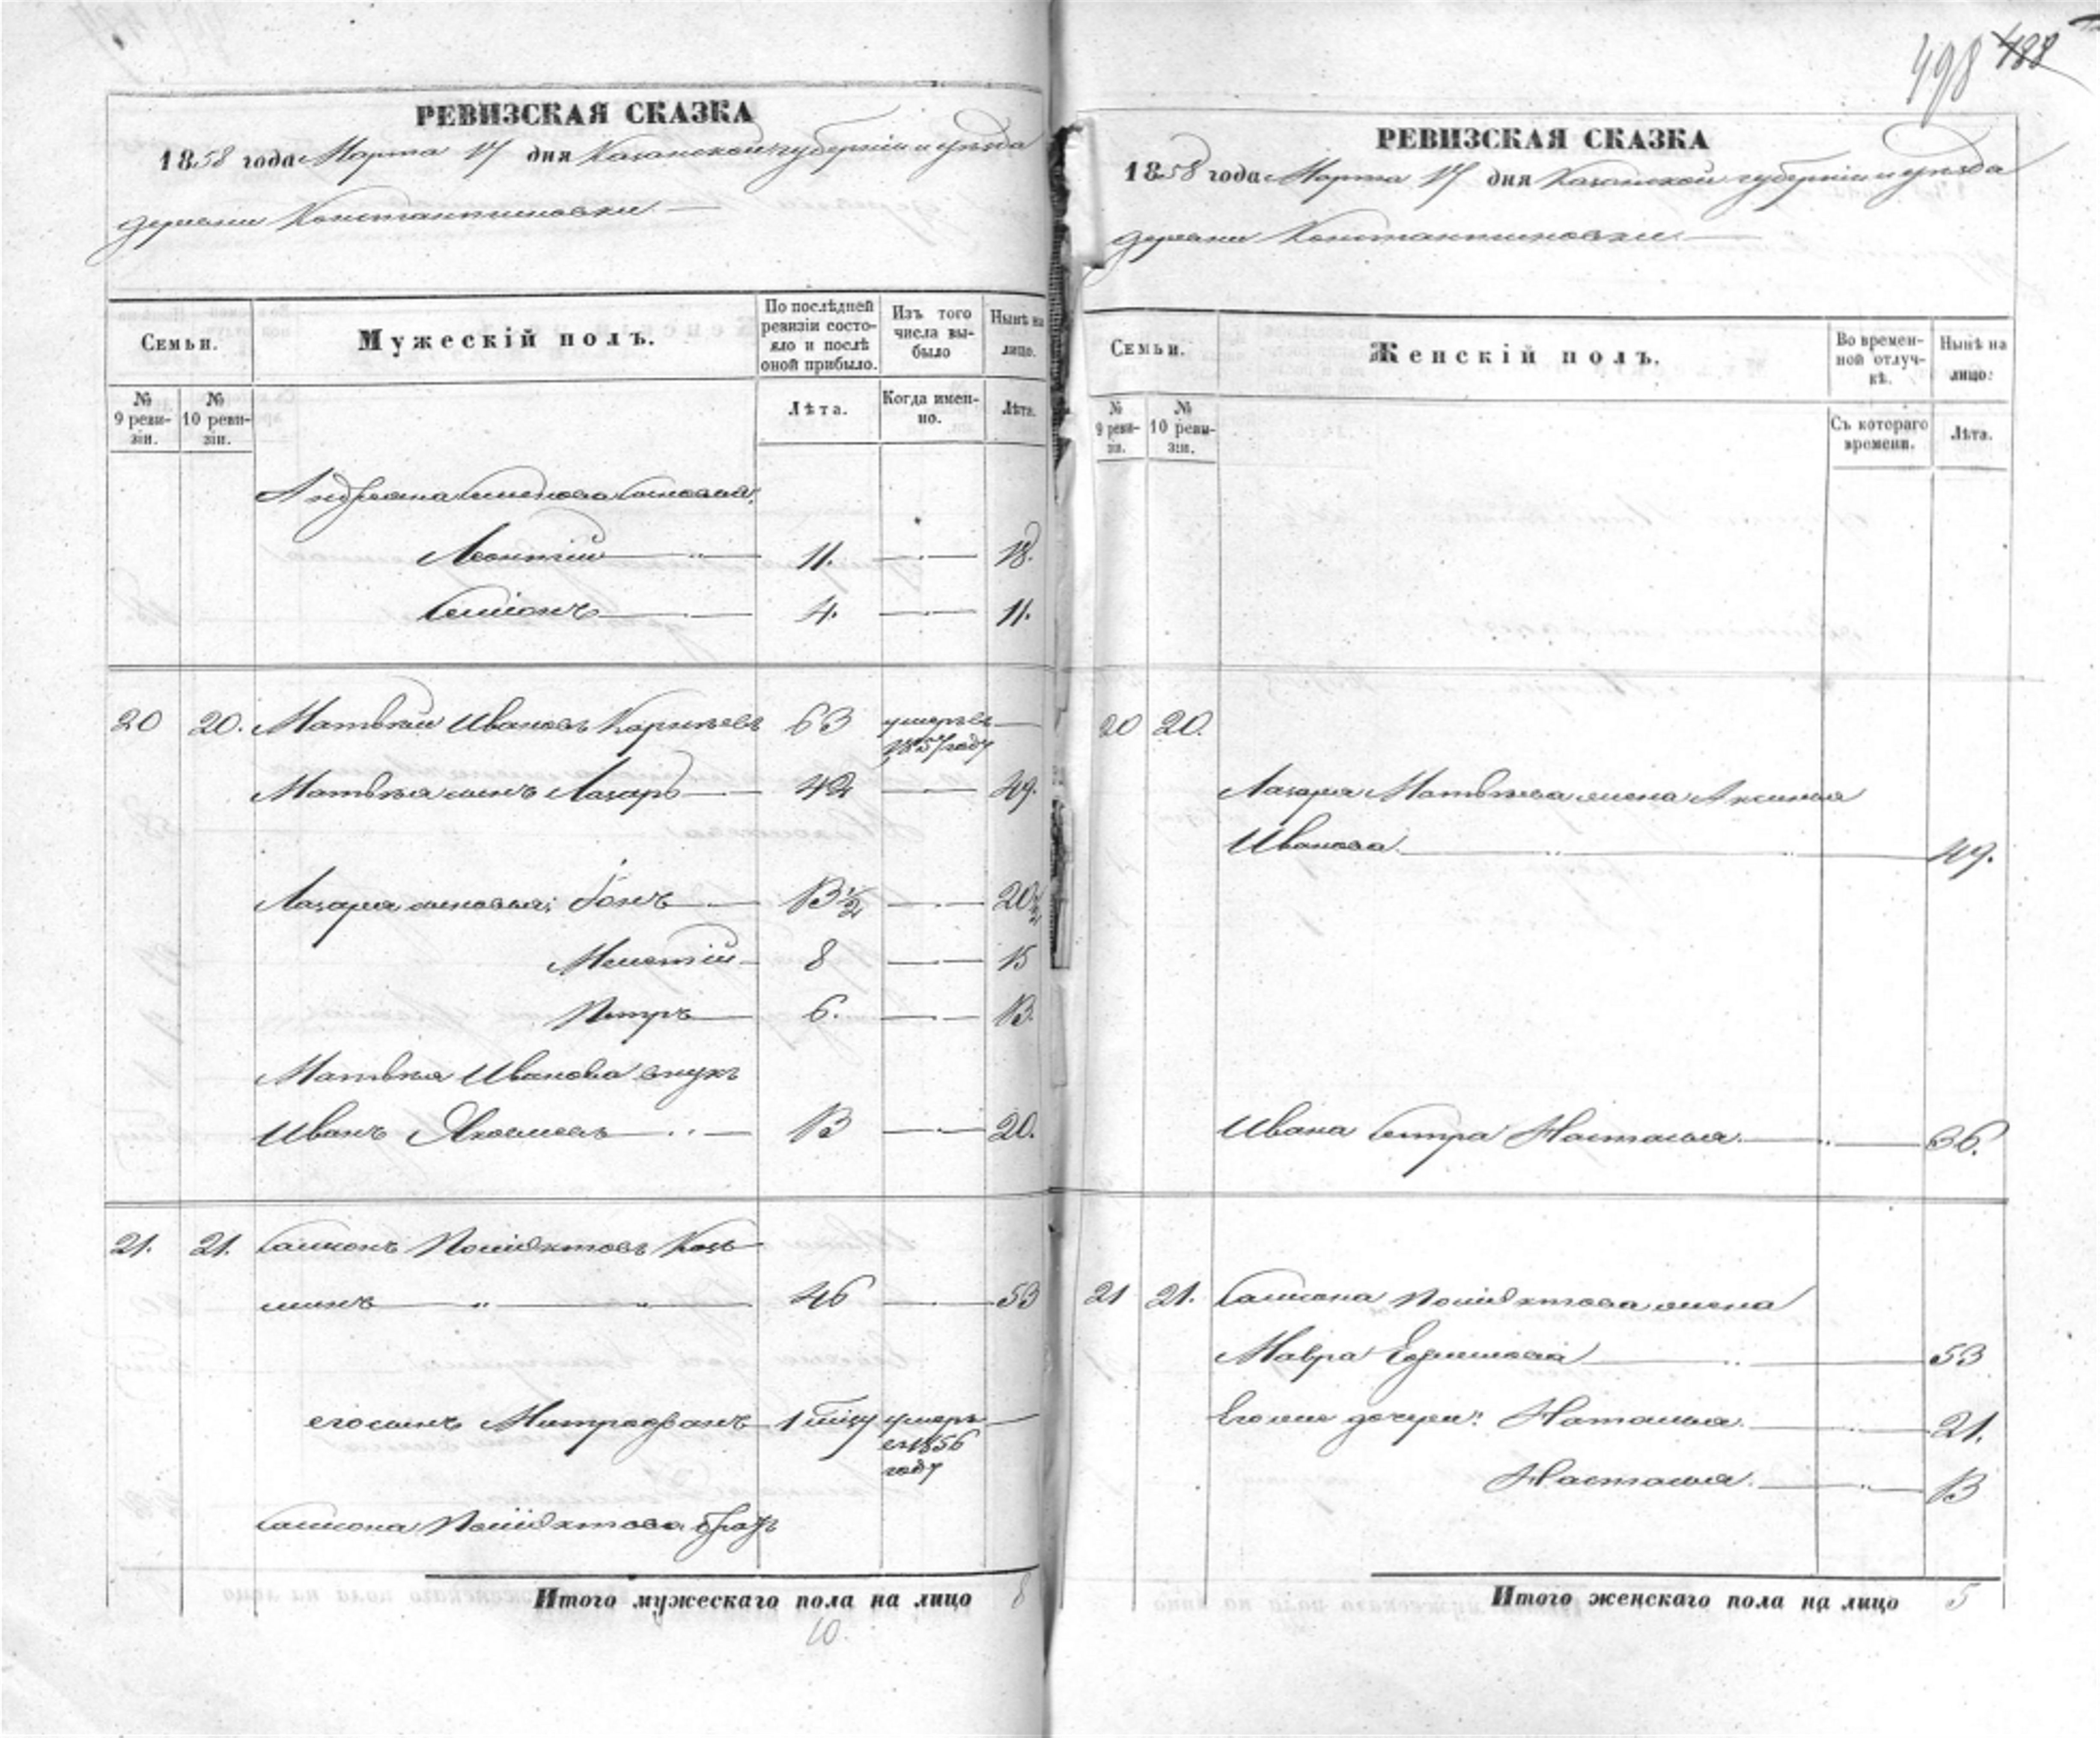 498 488
РЕВИЗСКАЯ СКАЗКА
1858 года Марта 17 дня Казанской губерніи и уѣзда
деревни Константиновки
Семьи.
Мужескій полъ.
По послѣдней ревизіи состояло и послѣ оной прибыло.
Изъ того числа выбыло
Нынѣ на лицо.
№ 9 ревизіи.
№ 10 ревизіи.
Лѣта.
Когда именно.
Лѣта.
Андреяна Семенова сыновья,
Леонтій 11. 18.
Семіонъ 4. 11.
20 20. Матвѣй Ивановъ 63 умеръ въ 1857 году
Матвѣя сынъ Лазарь 42 49.
Лазаря сыновья: 13½ 20½
Мелетій 8 15
Петръ 6. 13.
Матвѣя Иванова внукъ
Иванъ Яковлевъ 13 20.
21. 21. Самсонъ Полиэктовъ Козь
минъ 46 53
его сынъ Митрофанъ 1 умеръ въ 1856 году
Самсона Полиэктова братъ
Итого мужескаго пола на лицо 8
10.
РЕВИЗСКАЯ СКАЗКА
1858 года Марта 17 дня Казанской губерніи и уѣзда
деревни Константиновки
Семьи.
Женскій полъ.
Во временной отлучкѣ.
Нынѣ на лицо.
№ 9 ревизіи.
№ 10 ревизіи.
Съ котораго времени.
Лѣта.
20 20.
Лазаря Матвѣева жена Аксинья
Иванова 49.
Ивана сестра Настасья 36.
21 21. Самсона Полиэктова жена
Мавра 53
Его же дочери: Наталья 21.
Настасья 13
Итого женскаго пола на лицо 5